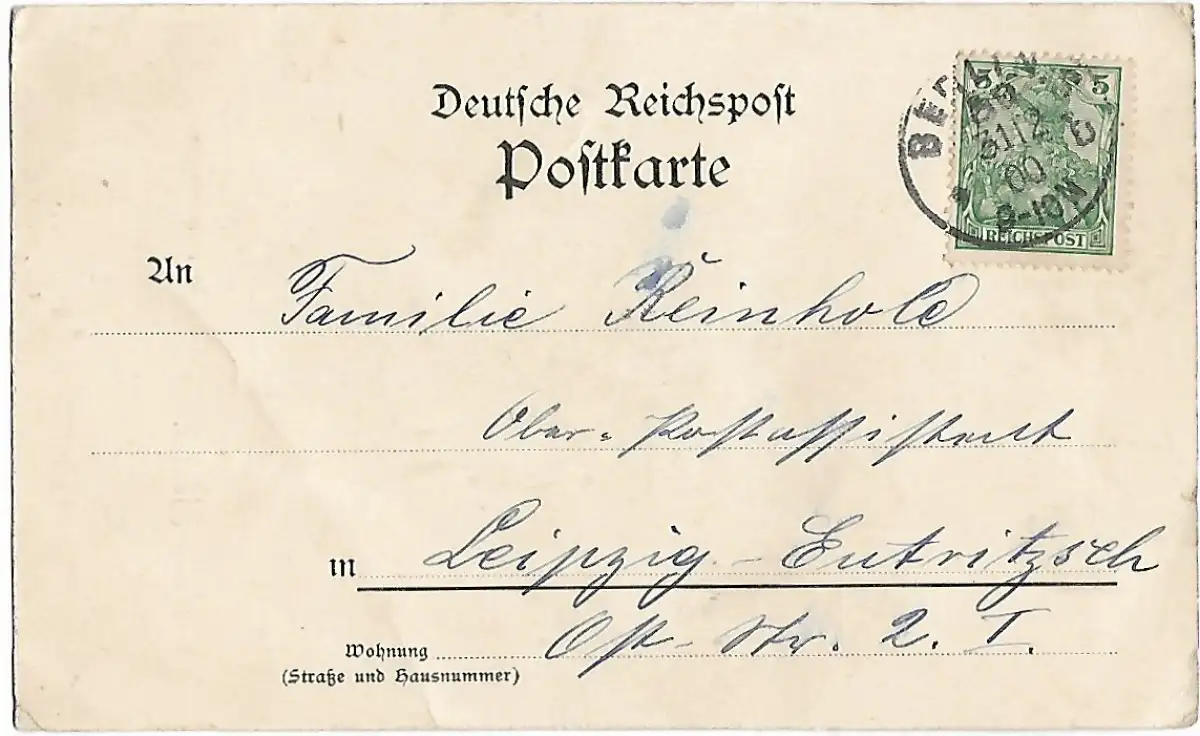 Deutsche Reichspost
Postkarte
5 5
BERLIN
31 12
00
8-10N
REICHSPOST
An Familie Reinhold
Ober-Postassistent
in Leipzig-Eutritzsch
Wohnung Ost-Str. 2. I.
(Straße und Hausnummer)